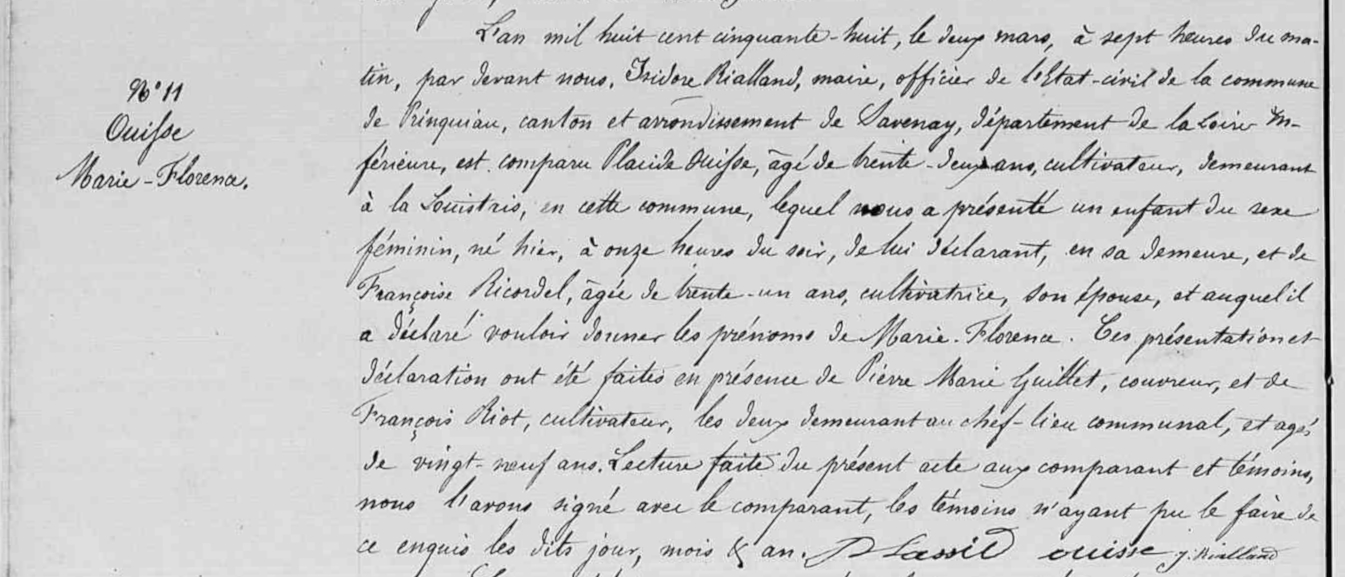 N° 11
Ouisse
Marie-Florence.
L'an mil huit cent cinquante-huit, le deux mars, à sept heures du ma-
tin, par devant nous, Isidore Rialland, maire, officier de l'Etat-civil de la commune
de Prinquiau, canton et arrondissement de Savenay, département de la Loire In-
férieure, est comparu Placide Ouisse, âgé de trente-deux ans, cultivateur, demeurant
à la en cette commune, lequel nous a présenté un enfant du sexe
féminin, né hier, à onze heures du soir, de lui déclarant, en sa demeure, et de
Françoise Ricordel, âgée de trente-un ans, cultivatrice, son épouse, et auquel il
a déclaré vouloir donner les prénoms de Marie-Florence. Ces présentation et
déclaration ont été faites en présence de Pierre Marie Guillet, couvreur, et de
François Riot, cultivateur, les deux demeurant au chef-lieu communal, et agés
de vingt-neuf ans. Lecture faite du présent acte aux comparant et témoins,
nous l'avons signé avec le comparant, les témoins n'ayant pu le faire de
ce enquis les dits jour, mois & an. ouisse J. Rialland